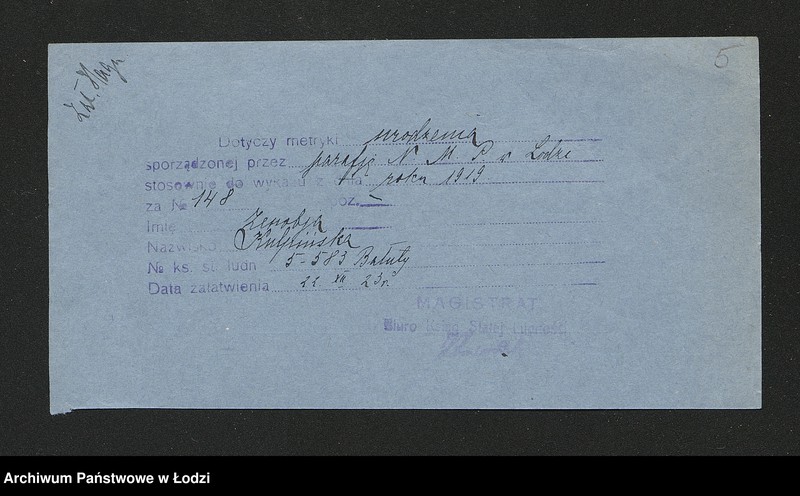 5
Zał.
Dotyczy metryki urodzenia
sporządzonej przez parafję N. M. P. w Łodzi
stosownie do wykazu z dnia roku 1919
za № 148 poz. –
Imię Zenobja
Nazwisko Kulpińska
№ ks. st. ludn 5-583 Bałuty
Data załatwienia 22 XII 23 r.
MAGISTRAT
Biuro Ksiąg Stałej Ludności
Archiwum Państwowe w Łodzi